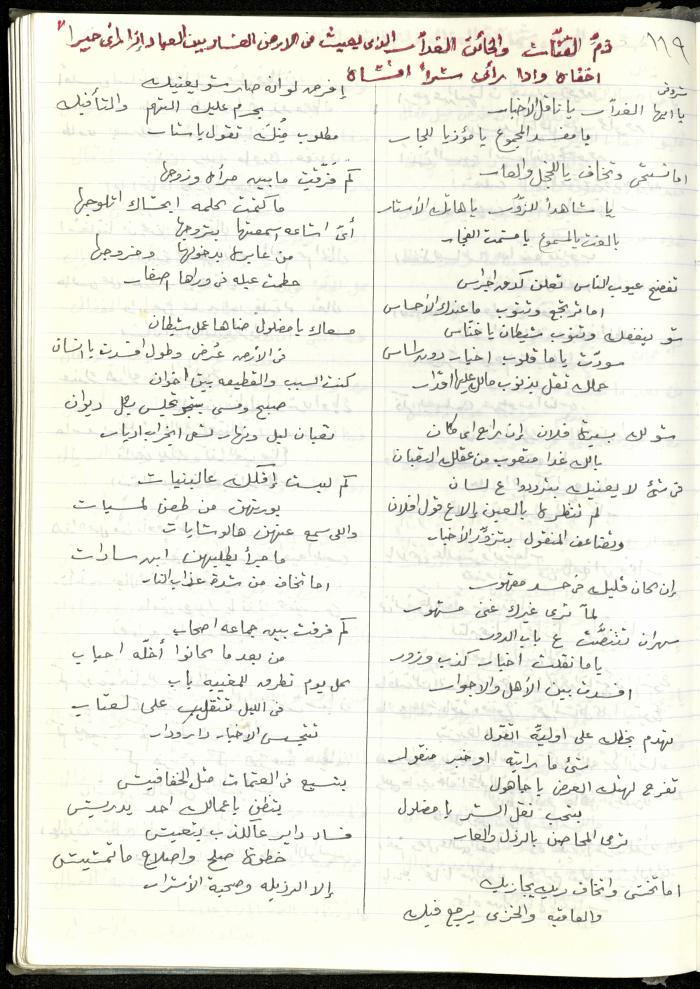 ١١٩
ذمُّ الفتّان والخائن الغدّار الذي يعيث في الارض الفساد بين العباد إذا رأى خيراً
اخفاه واذا رأى شراً افشاه
شروقي
يا أيها الغدّار يا ناقل الأخبار
يا مفسد المجموع يا مؤذيا للجار
اما تستحي وتخاف يا للخجل والعار
يا شاهداً للزور يا هاتك الأستار
تفضح عيوب الناس تعلن كدق اجراس
اما ترتجع وتتوب ما عندك الأحساس
شو بينفعك وتنوب شيطان يا خنّاس
سودّت يا ما قلوب اخبار دون ساس
حملك ثقل بذنوب مالك عليها اقدار
شو لك بسيرة فلان إن راح او كان
بالك غدا منقوب من عقلك التعبان
في شيء لا يعنيك بتردده ع لسان
لم تنظره بالعين إلا ع قول افلان
وتضاعف المنقول بتزوّد الأخبار
إن كان قلبك في حسد مقهور
لمّا ترى غيرك غني مستور
سهران تتنصّت ع باب الدور
ياما نقلت اخبار كذب وزور
افسدت بين الأهل والاجوار
تهدم بحطك على اولية القول
شيء ما رايته او خبر منقول
تفرح لهتك العرض يا جاهول
بتحب نقل الشر يا مضلول
ترمي المحاصن بالرذل والعار
اما تختشي واتخاف ربك يجازيك
والعاقبة والخزي يرجع فيك
إفرض لو انه صار شو يعنيك
بحرم عليك التهم والتأفيك
مطلوب منك تقول يا ستار
كم فرّقت ما بين مرأه وزوجها
ما كتمت كلمه ابحشاك اتلوجها
أيّ اشاعه اسمعتها بتروجها
من غابر بدخولها وخروجها
حطمت عيله في وراها اصغار
مسعاك يا مضلول هذا عمل شيطان
في الأرض عرض وطول افسدت يا انسان
كنت السبب والقطيعه بين اخوان
صبح ومسى بتجي تجلس بكل ديوان
تعبان ليل ونهار لشن الخراب ادبار
كم لبست إفكك عالبنيات
بورتهن من طعن لمسيات
واللي سمع عنهن هالوشايات
ما جرأ يطلبهن ابن سادات
اما تخاف من شدة عذاب النار
كم فرقت بين جماعه اصحاب
من بعد ما كانوا أخلّه احباب
كل يوم تطرق للمغيبه باب
في الليل تتقلب على لعتاب
تتجسس الاخبار دار ودار
بتسبع في العتمات مثل الخفافيش
بتظن يا عمالك احد يدريش
فساد داير عالكذب بتعيش
خطوة صلح واصلاح ما تمشيش
إلا الرذيله وصحبة الأشرار